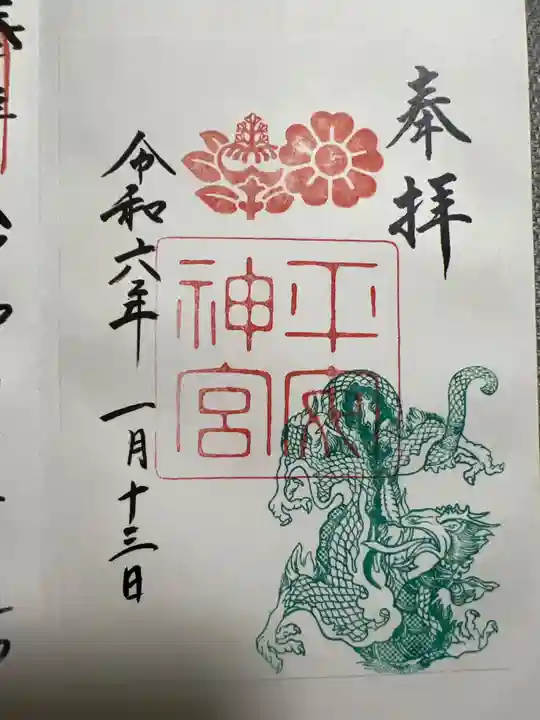 奉拝
平安神宮
令和六年一月十三日